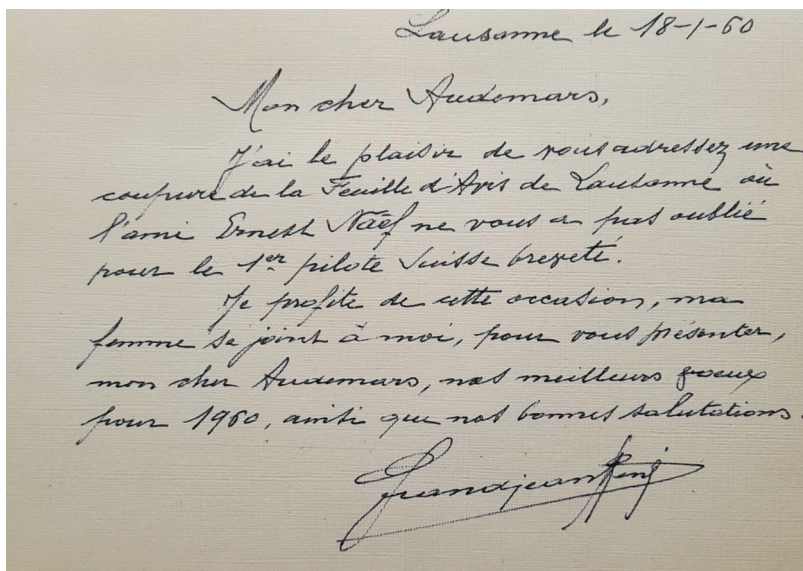 Lausanne le 18-1-60
Mon cher Audemars,
J'ai le plaisir de vous adressez une
coupure de la Feuille d'Avis de Lausanne où
l'ami Ernest Näef ne vous a pas oublié
pour le 1er pilote Suisse breveté.
Je profite de cette occasion, ma
femme se joint à moi, pour vous présenter,
mon cher Audemars, nos meilleurs voeux
pour 1960, ainsi que nos bonnes salutations.
Grandjean René